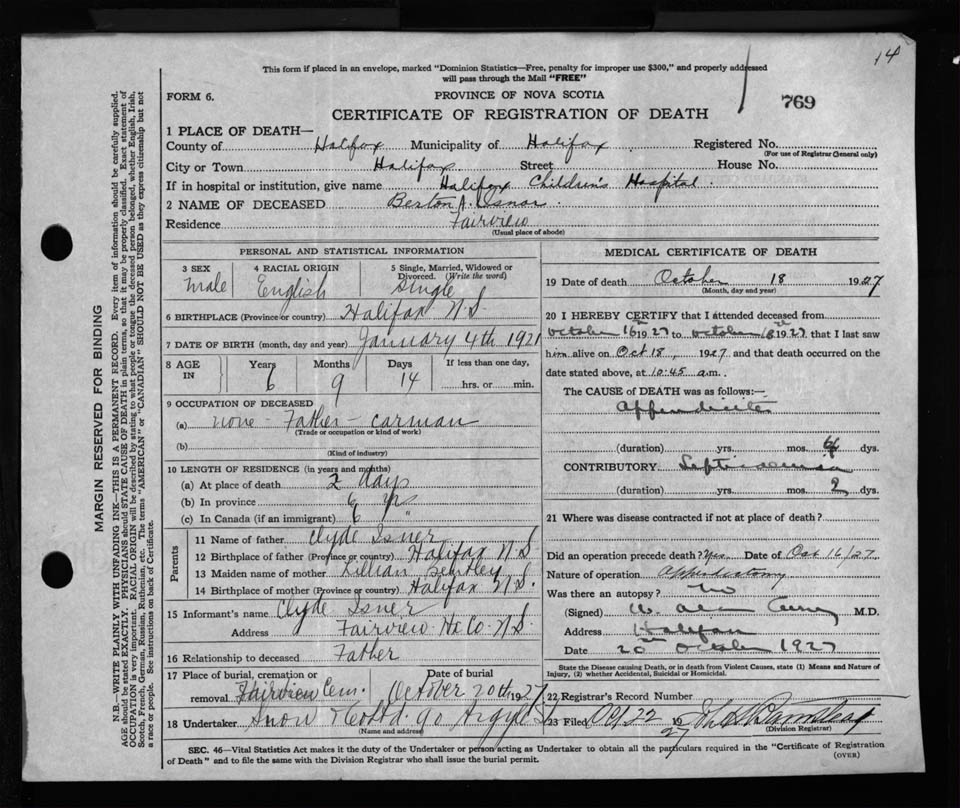 14
This form if placed in an envelope, marked "Dominion Statistics—Free, penalty for improper use $300," and properly addressed
will pass through the Mail "FREE"
FORM 6.
PROVINCE OF NOVA SCOTIA
769
CERTIFICATE OF REGISTRATION OF DEATH
1 PLACE OF DEATH—
County of Halifax Municipality of Halifax Registered No.
(For use of Registrar General only)
City or Town Halifax Street House No.
If in hospital or institution, give name Halifax Children's Hospital.
2 NAME OF DECEASED Berton A. Isnor.
Residence Fairview
(Usual place of abode)
PERSONAL AND STATISTICAL INFORMATION
3 SEX 4 RACIAL ORIGIN 5 Single, Married, Widowed or
Divorced. (Write the word)
male English Single
6 BIRTHPLACE (Province or country) Halifax N.S.
7 DATE OF BIRTH (month, day and year) January 4th 1921
8 AGE IN Years Months Days If less than one day,
6 9 14 hrs. or min.
9 OCCUPATION OF DECEASED
(a) none - Father carman
(Trade or occupation or kind of work)
(b)
(Kind of industry)
10 LENGTH OF RESIDENCE (in years and months)
(a) At place of death 2 days
(b) In province 6 yrs
(c) In Canada (if an immigrant) 6 "
Parents
11 Name of father Clyde Isner
12 Birthplace of father (Province or country) Halifax N.S.
13 Maiden name of mother Lillian Bentley
14 Birthplace of mother (Province or country) Halifax N.S.
15 Informant's name Clyde Isner
Address Fairview Hx Co. N.S.
16 Relationship to deceased Father
17 Place of burial, cremation or Date of burial
removal Fairview Cem. October 20th 1927
18 Undertaker Snow & Co Ltd. 90 Argyle St
(Name and address)
MEDICAL CERTIFICATE OF DEATH
19 Date of death October 18 1927
(Month, day and year)
20 I HEREBY CERTIFY that I attended deceased from
october 16th 1927 to october 18 1927 that I last saw
him alive on Oct 18, 1927 and that death occurred on the
date stated above, at 10:45 a.m.
The CAUSE of DEATH was as follows:—
Appendicitis
(duration) yrs. mos. dys.
CONTRIBUTORY Septicaemia
(duration) yrs. mos. 2 dys.
21 Where was disease contracted if not at place of death?
Did an operation precede death? Yes. Date of Oct 16/27
Nature of operation Appendectomy
Was there an autopsy? No
(Signed) W. Alan Curry M.D.
Address Halifax
Date 20th October 1927
State the Disease causing Death, or in death from Violent Causes, state (1) Means and Nature of
Injury, (2) whether Accidental, Suicidal or Homicidal.
22 Registrar's Record Number
23 Filed Oct 22 1927
(Division Registrar)
SEC. 46—Vital Statistics Act makes it the duty of the Undertaker or person acting as Undertaker to obtain all the particulars required in the "Certificate of Registration
of Death" and to file the same with the Division Registrar who shall issue the burial permit.
(OVER)
MARGIN RESERVED FOR BINDING
N.B.—WRITE PLAINLY WITH UNFADING INK—THIS IS A PERMANENT RECORD. Every item of information should be carefully supplied.
AGE should be stated EXACTLY. PHYSICIANS should STATE CAUSE OF DEATH in plain terms, so that it may be properly classified. Exact statement of
OCCUPATION is very important. RACIAL ORIGIN will be described by stating to what people or tongue the deceased person belonged, whether English, Irish,
Scotch, French, German, Russian, Ruthenian, etc. The terms "AMERICAN" or "CANADIAN" SHOULD NOT BE USED as they express citizenship but not
a race or people. See instructions on back of Certificate.